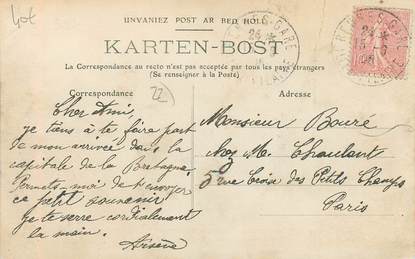 40t
UNVANIEZ POST AR BED HOLL
KARTEN-BOST
La Correspondance au recto n'est pas acceptée par tous les pays étrangers
(Se renseigner à la Poste)
Correspondance
Adresse
22
Cher Ami,
je tiens à te faire part
de mon arrivée dans la
capitale de la Bretagne.
Permets-moi de t'envoyer
ce petit souvenir
je te serre cordialement
la main.
Arsène
Monsieur Bouré
chez M. Chaulant
5 rue Croix des Petits Champs
Paris
RENNES-GARE